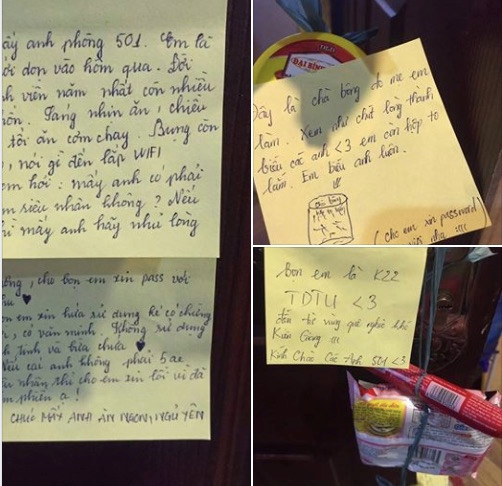 ấy anh phòng 501. Em là
ới dọn vào hôm qua. Đời
h viên năm nhất còn nhiều
hốn. Sáng nhịn ăn, chiều
tối ăn cơm chay. Bụng còn
, nói gì đến lắp WIFI
em hỏi : mấy anh có phải
m siêu nhân không ? Nếu
hì mấy anh hãy nhủ lòng
ông, cho bọn em xin pass với
n em xin hứa sử dụng kế có chừng
, có văn minh. Không sử dụng
h tinh và bừa
Nếu các anh không phải 5 ae
nhân thì cho em xin lỗi vì đã
m phiền ạ !
CHÚC MẤY ANH ĂN NGON, NGỦ YÊN
ĐẠI BÌNH
Đây là chà bông do mẹ em
làm. Xem như chút lòng thành
biếu các anh <3 em còn hộp to
lắm. Em biếu anh luôn.
(cho em xin password
nha !!!
bọn em là K22
TDTU <3
đến từ vùng quê nghèo khó
Kiên Giang !!!
Kính Chào Các Anh 501 <3